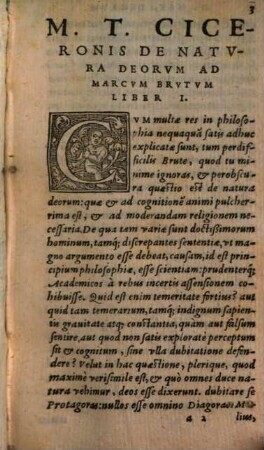 3
M. T. CICE-
RONIS DE NATV
RA DEORVM AD
MARCVM BRVTVM
LIBER I.
CVM multæ res in philoso
phia nequaquã satis adhuc
explicatæ sunt, tum perdif
ficilis Brute, quod tu mi
nime ignoras, & perobscu
ra quæstio est de natura
deorum: quæ & ad cognitionẽ animi pulcher-
rima est, & ad moderandam religionem ne-
cessaria. De qua tam variæ sunt doctissimorum
hominum, tamq; discrepantes sententiæ, vt ma
gno argumento esse debeat, causam, id est prin
cipium philosophiæ, esse scientiam: prudenterq;
Academicos à rebus incertis assensionem co-
hibuisse. Quid est enim temeritate fortius? aut
quid tam temerarium, tamq; indignum sapien
tis grauitate atq; constantia, quàm aut falsum
sentire, aut quod non satis exploratè perceptum
sit & cognitum, sine vlla dubitatione defen-
dere? Velut in hac quæstione, plerique, quod
maximè verisimile est, & quò omnes duce na
tura vehimur, deos esse dixerunt. dubitare se
Protagoras: nullos esse omnino Diagoras
a 2 lius,